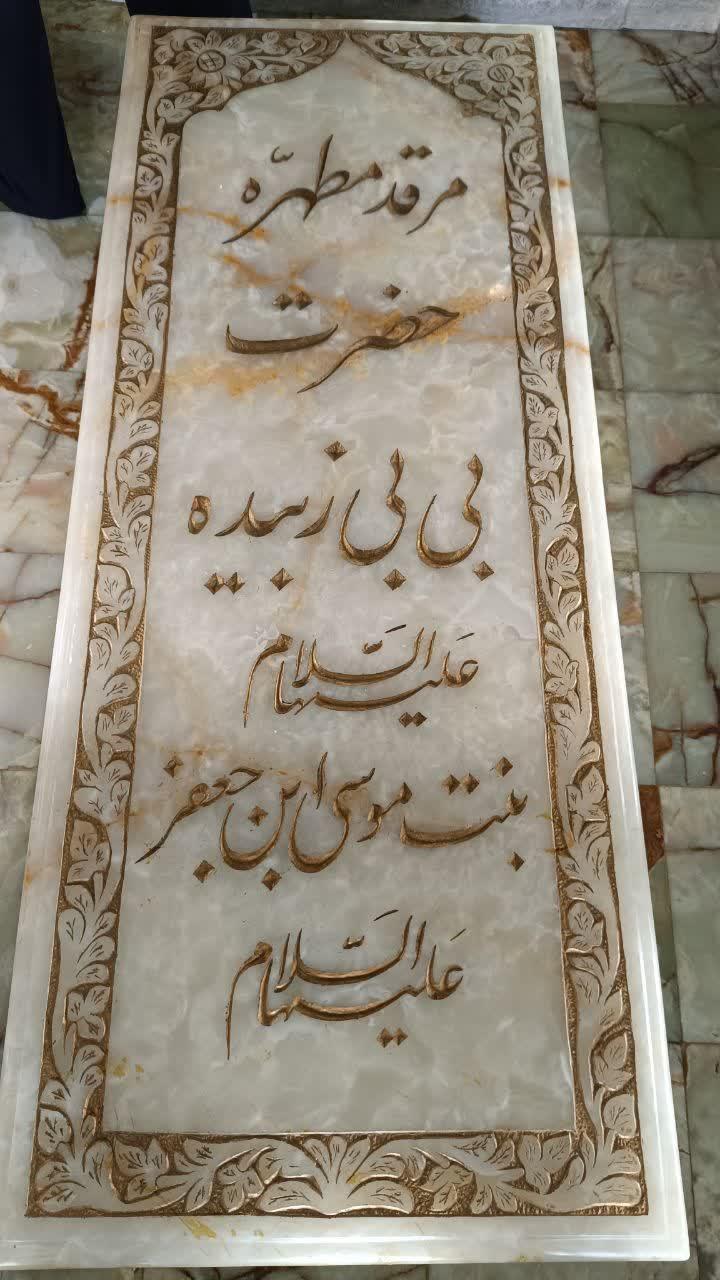 مرقد مطهّره
حضرت
بی بی زبیده
عَلیهاالسَّلام
بنت موسی ابن جعفر
عَلیهاالسَّلام